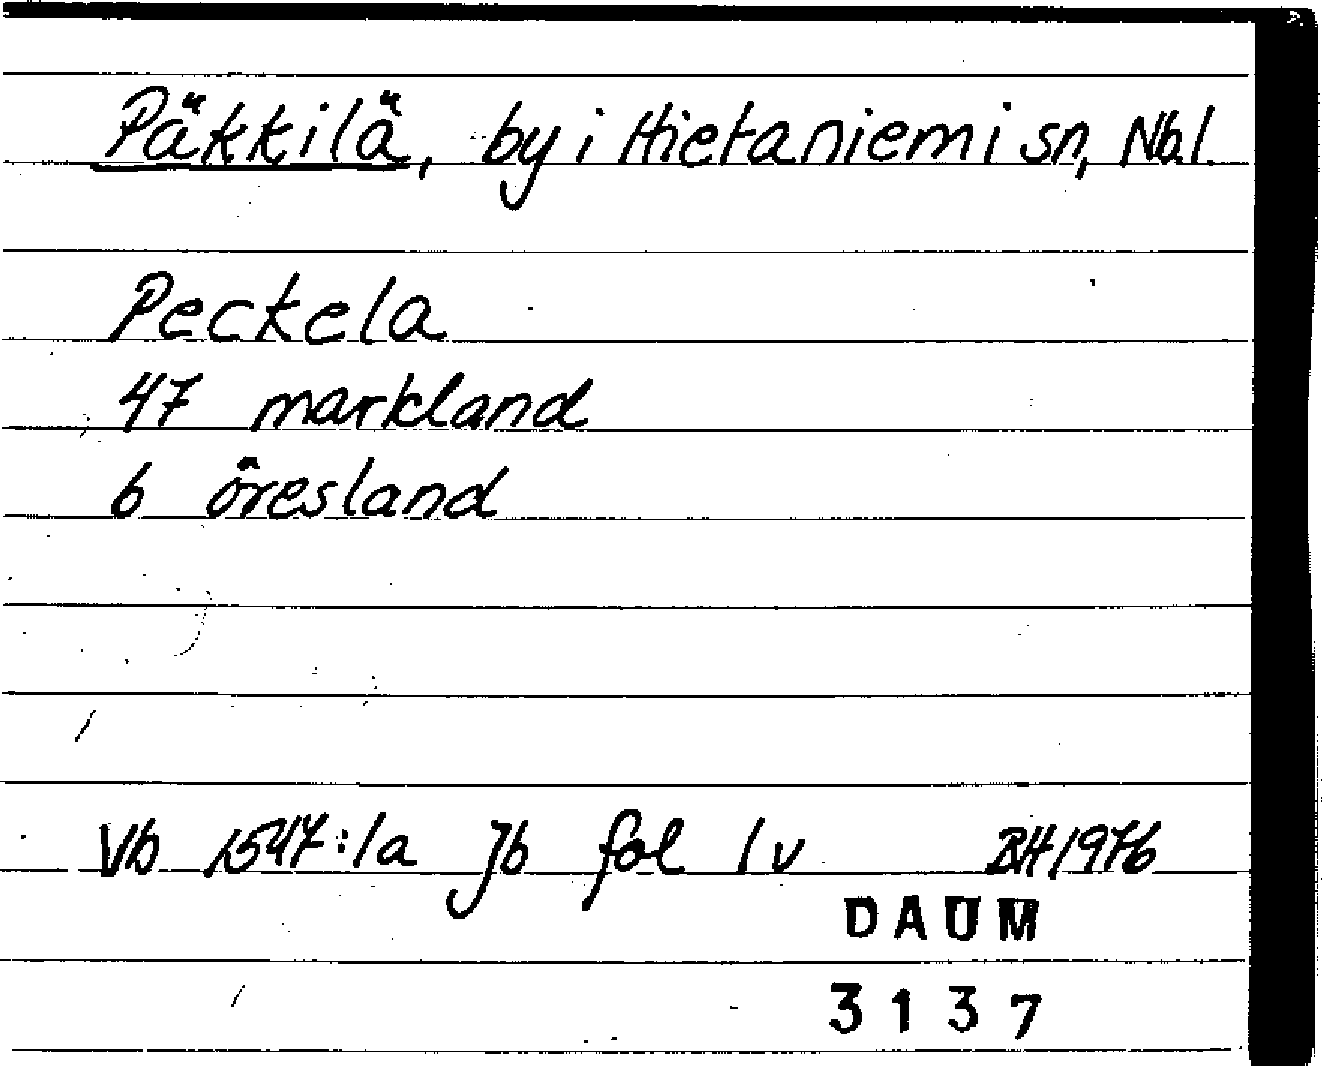 Päkkilä, by i Hietaniemi sn, Nb.l.
Peckela
47 markland
6 öresland
Vb 1547:1a Jb fol 1v BH 1976
DAUM
3137